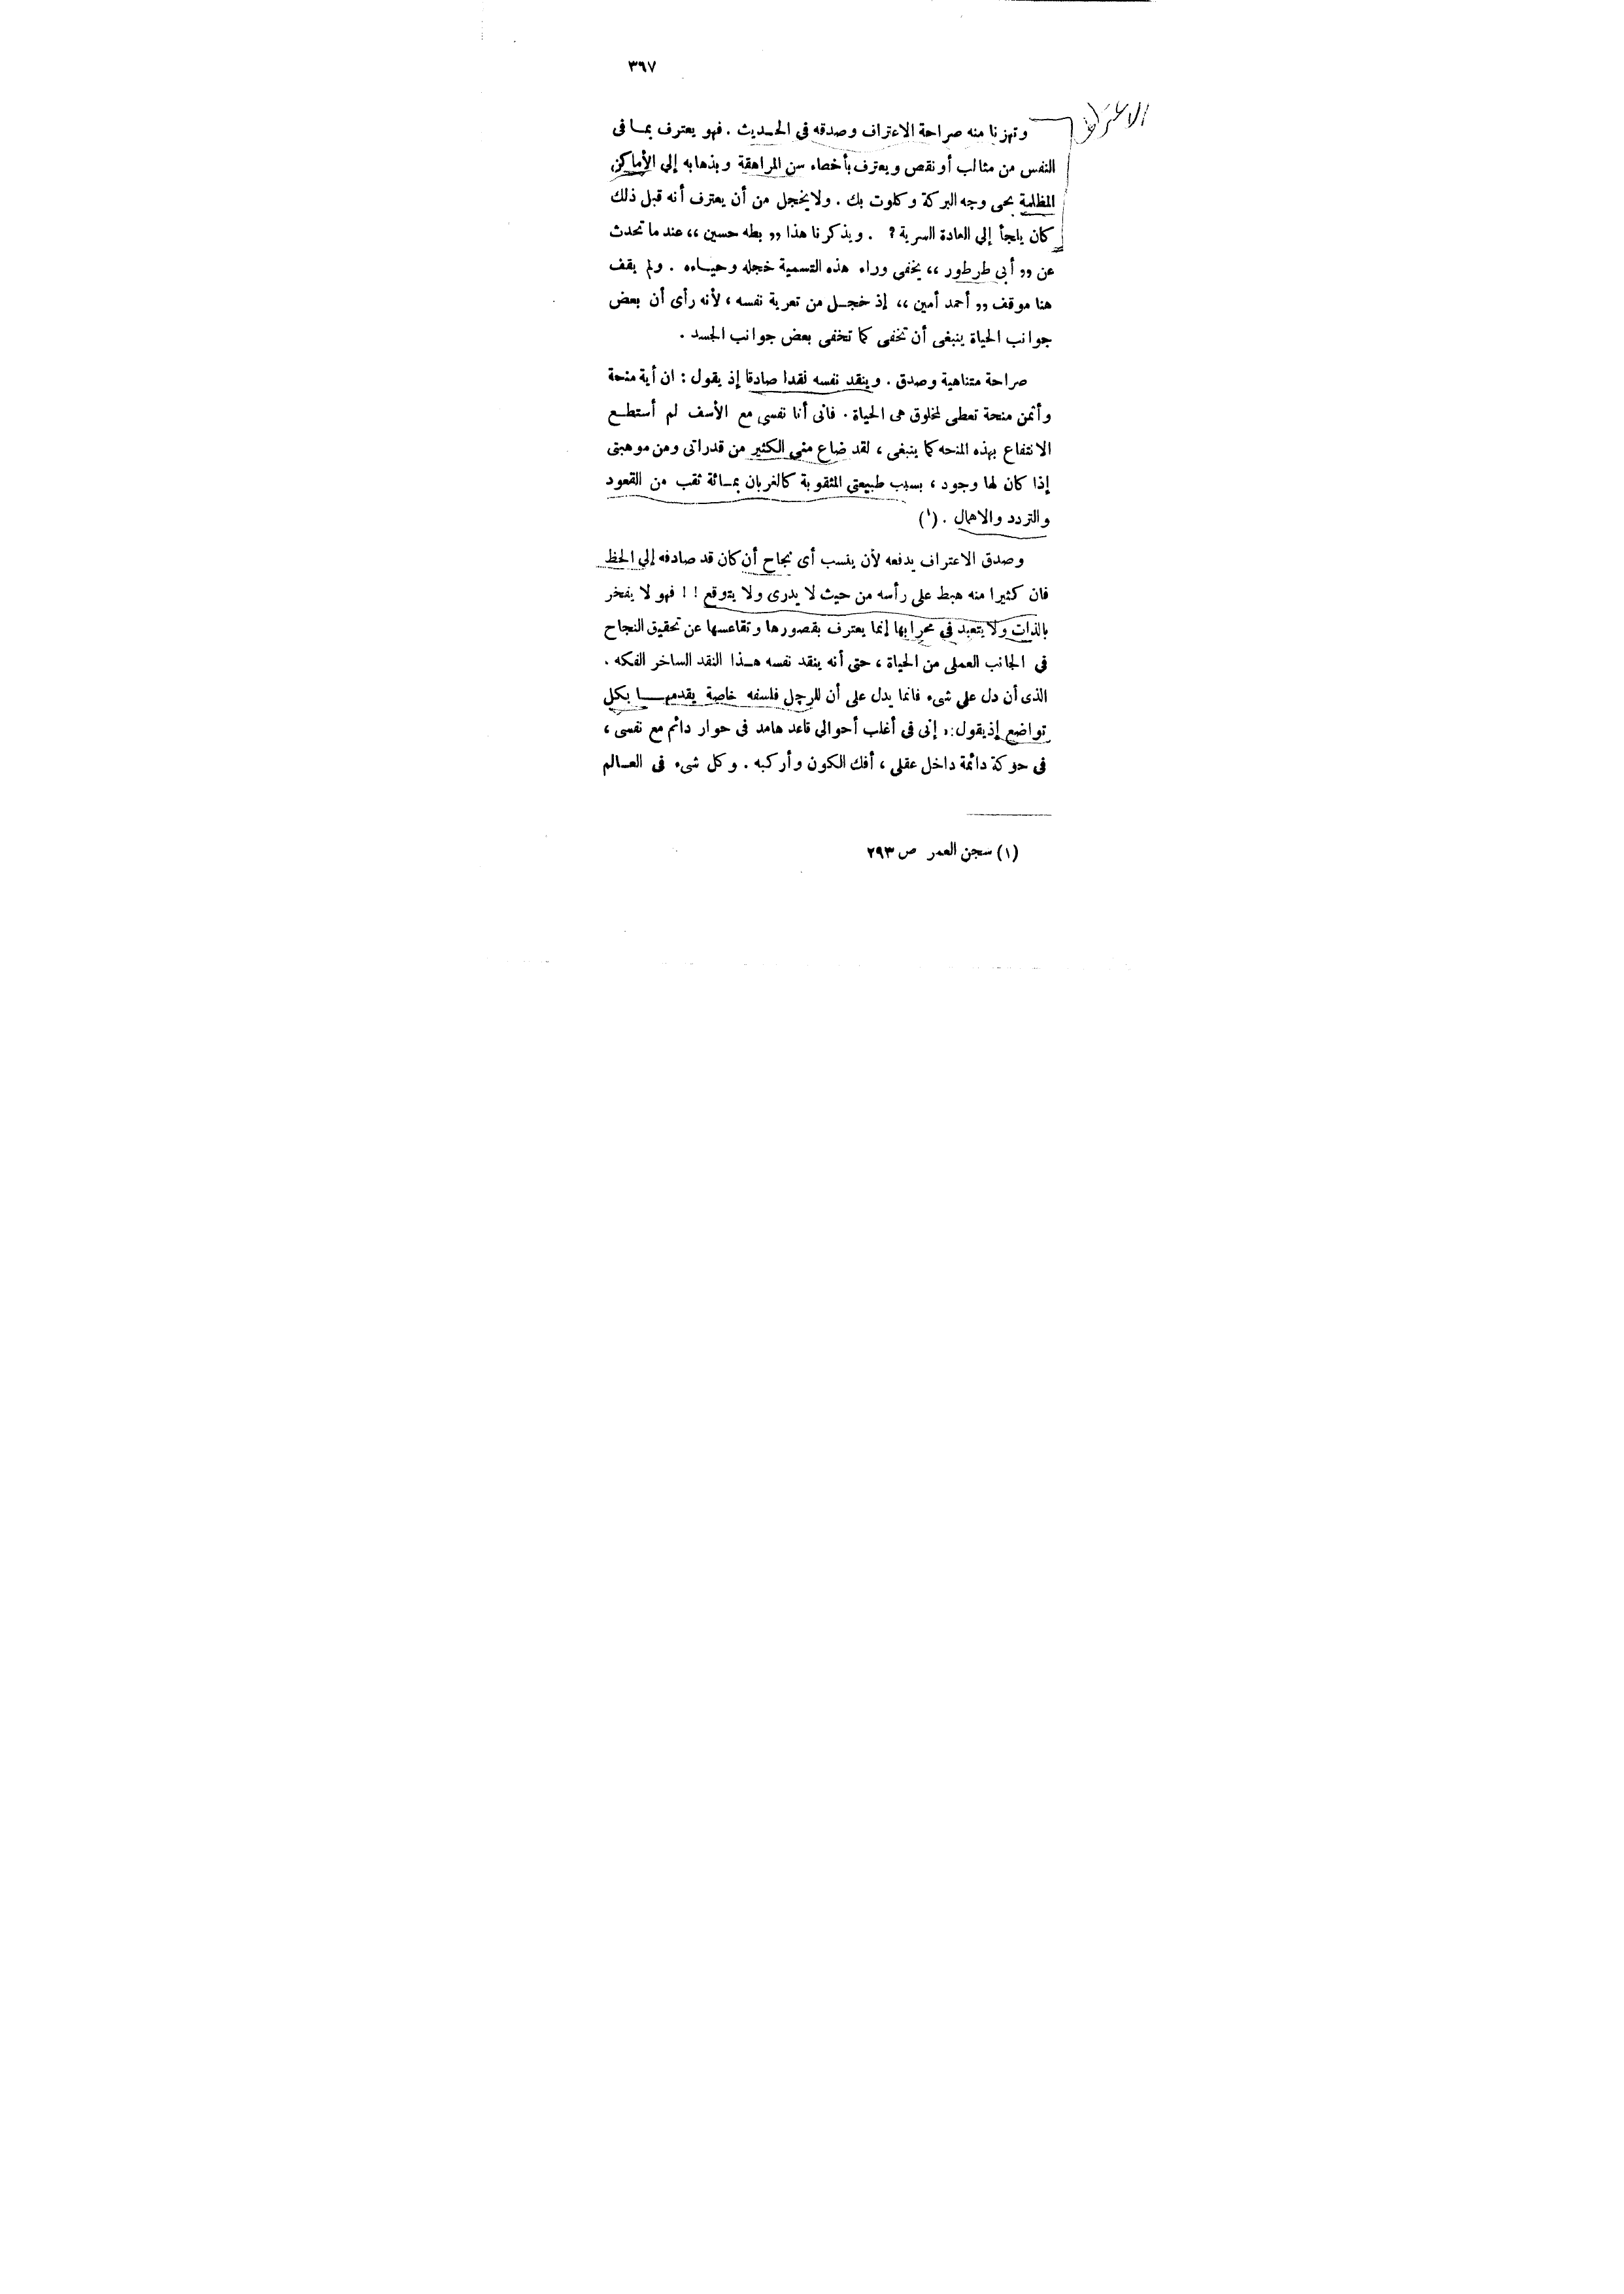 ٣٩٧
الاعتراف
وتهزنا منه صراحة الاعتراف وصدقه فى الحـديث . فهو يعترف بمـا فى
النفس من مثالب أو نقص ويعترف بأخصاء سن المراهقة وبذهابه إلى الأماكن
المظلمة بحى وجه البركة وكلوت بك . ولا يخجل من أن يعترف أنه قبل ذلك
كان يلجأ إلى العادة السرية ؟ . ويذكرنا هذا ,, بطه حسين ،، عند ما تحدث
عن ,, أبى طرطور ،، يخفى وراء هذه التسمية خجله وحيـاءه . ولم يقف
هنا موقف ,, أحمد أمين ،، إذ خجـل من تعرية نفسه ، لأنه رأى أن بعض
جوانب الحياة ينبغى أن تخفى كما تخفى بعض جوانب الجسد .
صراحة متناهية وصدق . وينقد نفسه نقدا صادقا إذ يقول : ان أية منحة
وأثمن منحة تعطى لمخلوق هى الحياة . فانى أنا نفسى مع الأسف لم أستطـع
الانتفاع بهذه المنحه كما ينبغى ، لقد ضاع منى الكثير من قدراتى ومن موهبتى
إذا كان لها وجود ، بسبب طبيعتى المثقوبة كالغربان بمـائة ثقب من القعود
والتردد والاهمال . (١)
وصدق الاعتراف يدفعه لأن ينسب أى نجاح أن كان قد صادفه إلى الحظ
فان كثيرا منه هبط على رأسه من حيث لا يدرى ولا يتوقع ! ! فهو لا يفخر
بالذات ولا يتعبد في محرابها إنما يعترف بقصورها وتقاعسها عن تحقيق النجاح
فى الجانب العملى من الحياة ، حتى أنه ينقد نفسه هـذا النقد الساخر الفكه .
الذى أن دل على شىء فانما يدل على أن للرجل فلسفه خاصة يقدمهـــا بكل
تواضع إذ يقول : , إنى فى أغلب أحوالى قاعد هامد فى حوار دائم مع نفسى ،
فى حركة دائمة داخل عقلى ، أفك الكون وأركبه . وكل شىء فى العـالم
(١) سجن العمر ص ٢٩٣